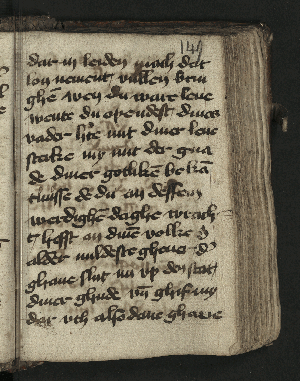 149
dar in leiden mach dat
lon nement vullen brin
ghē wen du ware leue
wente du opendest dines
vader h'te mit diner leue
sterke my mit der gna
de diner gotliken bekā
tnisse de du an dessem
werdighen daghe
hefst an dinē volke
alder mildeste gheuer
ghaue slut my up den
diner ghnde vn̄ ghif my
dar vth also dane ghaue